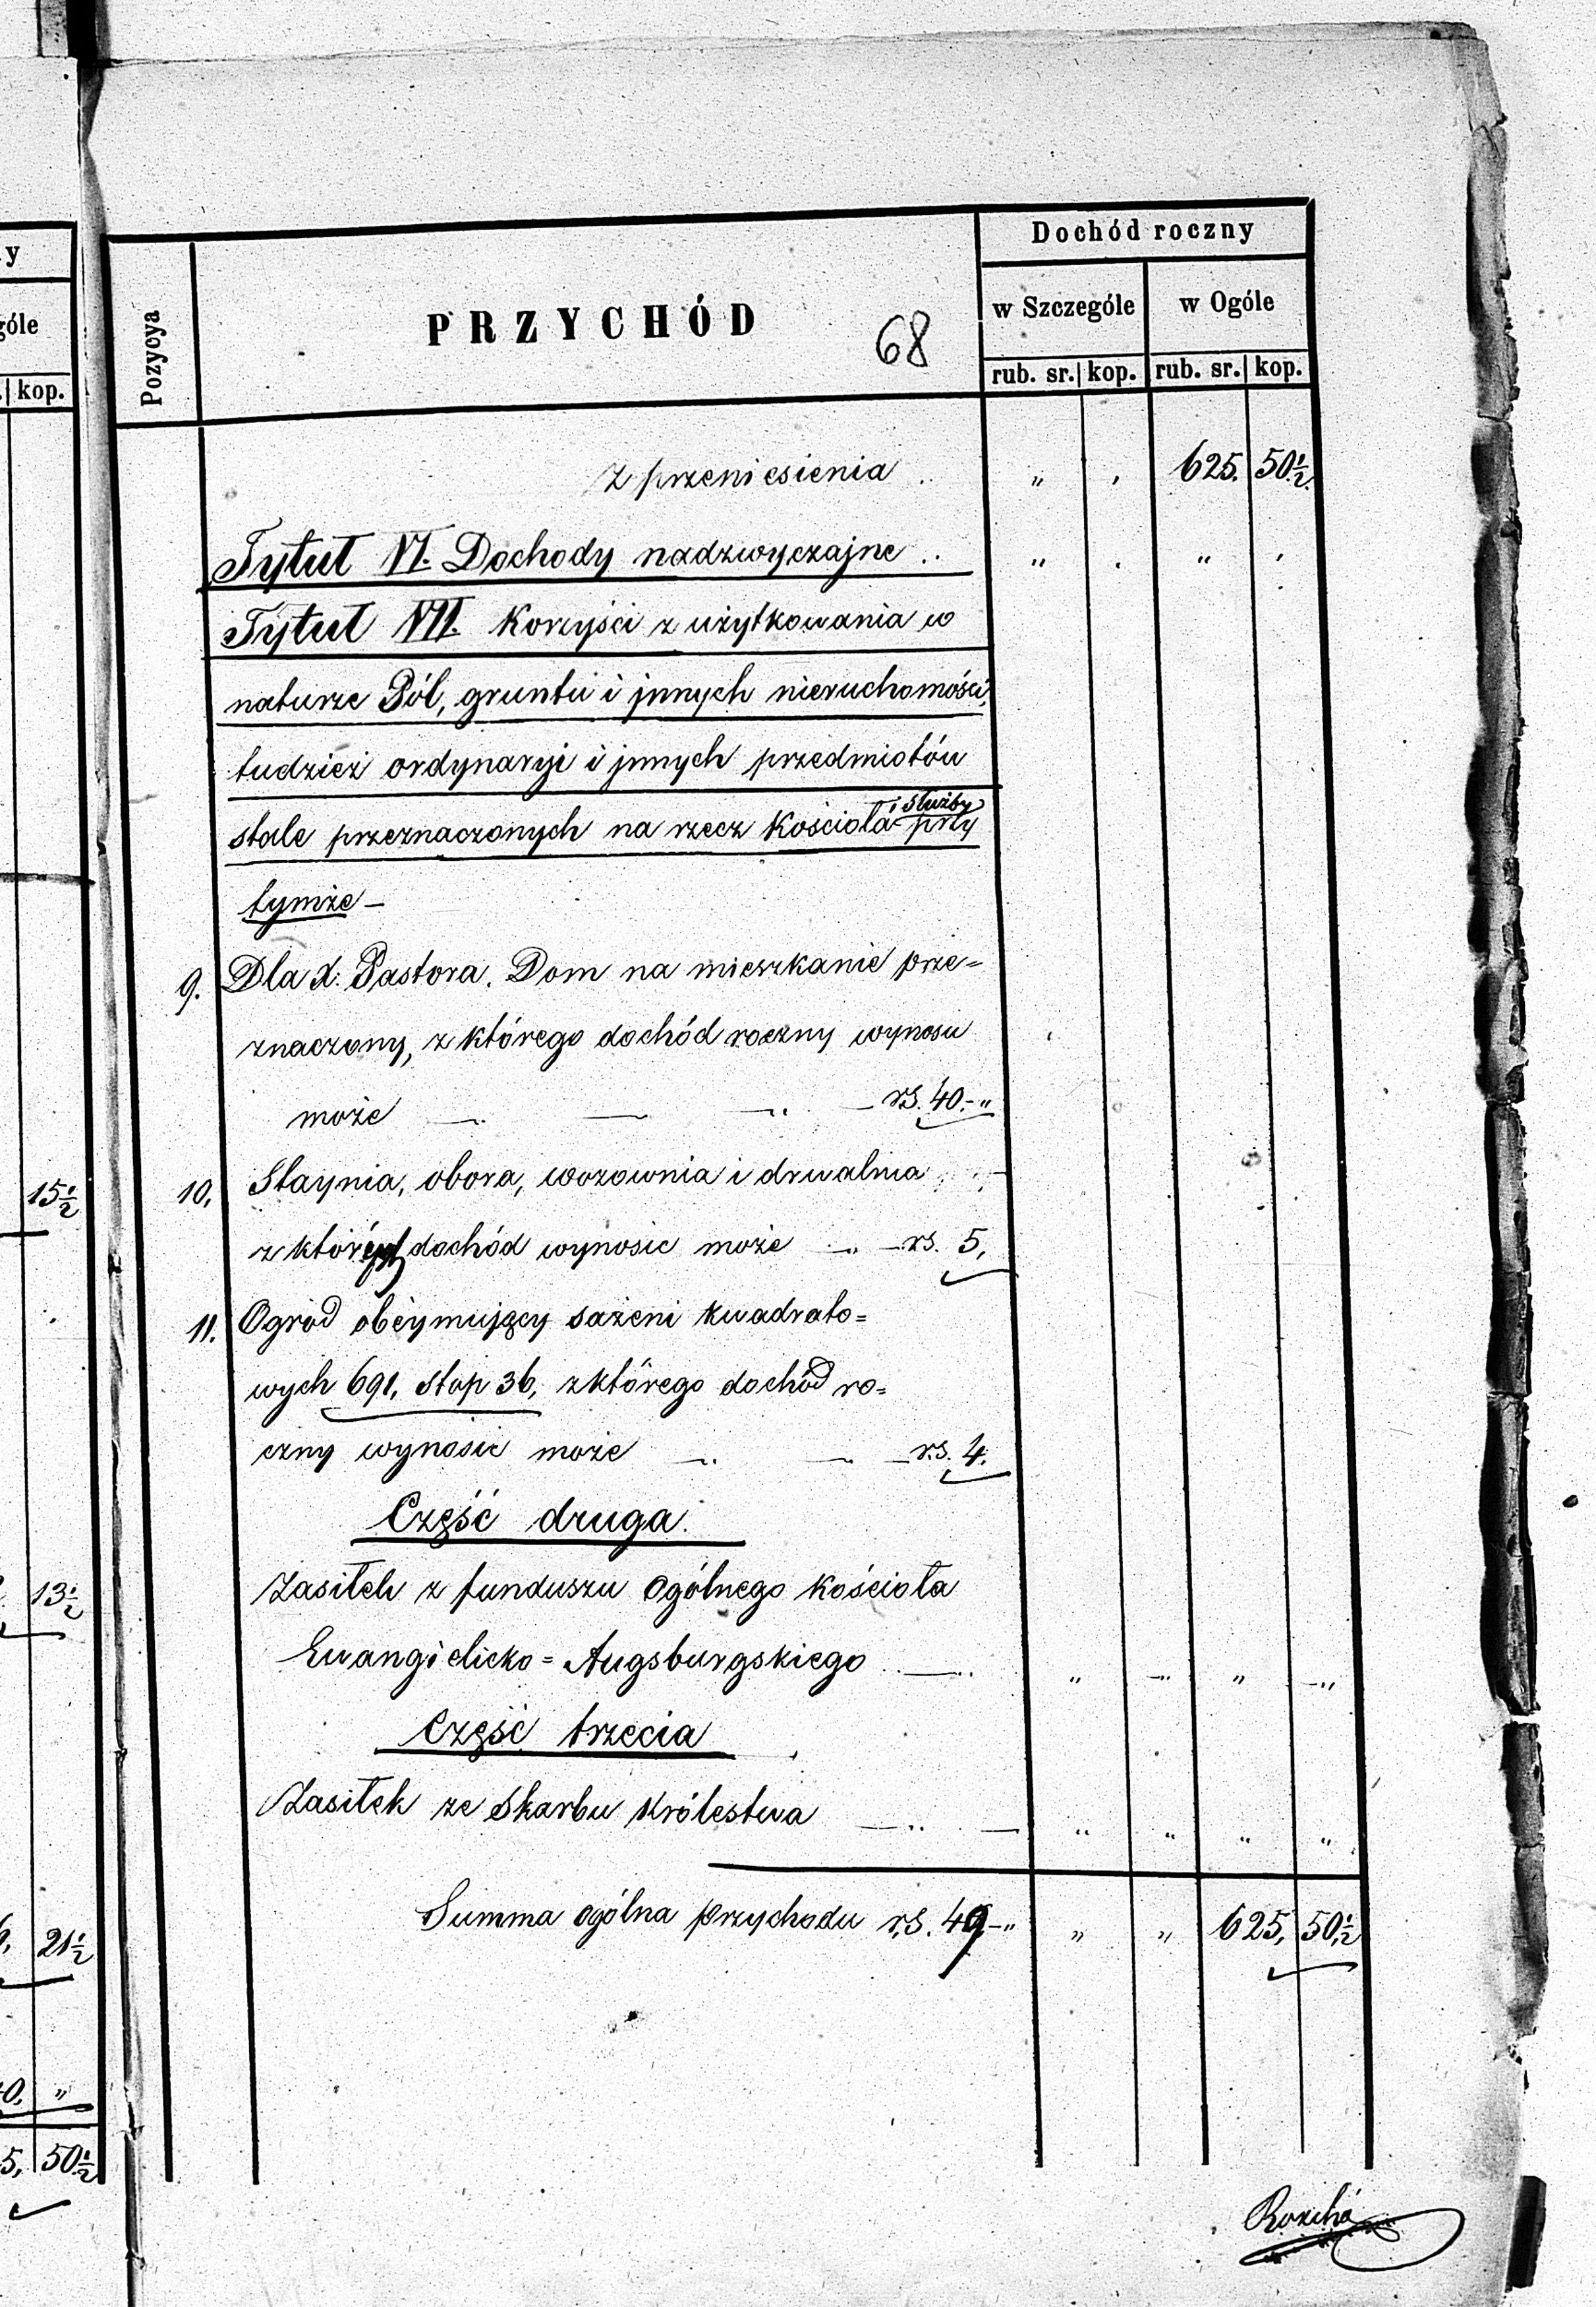 y
góle
kop.
15 1/2
13 1/2
21 1/2
0, "
5, 50 1/2
Pozycya
PRZYCHÓD
68
Dochód roczny
w Szczególe
w Ogóle
rub. sr. kop. rub. sr. kop.
z przeniesienia .. " , 625. 50 1/2
Tytuł VI. Dochody nadzwyczajne .. " . " ,
Tytuł VII. Korzyści z użytkowania w
naturze Pól, gruntu i jnnych nieruchomości,
tudzież ordynaryi i jnnych przedmiotów
i służby
stale przeznaczonych na rzecz Kościoła przy
tymże –
9. Dla X. Pastora. Dom na mieszkanie prze=
znaczony, z którego dochód roczny wynosić
może — . — — .. — rs. 40.-"
10. Staynia, obora, wozownia i drwalnia
z których dochód wynosić może — .. — rs. 5,
11. Ogród obeymujący sażeni kwadrato=
wych 691, stop 36, z którego dochód ro=
czny wynosić może — .. — — rs. 4.
Część druga.
Zasiłek z funduszu Ogólnego Kościoła
Ewangielicko=Augsburgskiego — .. " –" " –"
Część trzecia
Zasiłek ze Skarbu Królestwa — .. — " " " "
Summa ogólna przychodu rs. 49,-" " " 625, 50 1/2